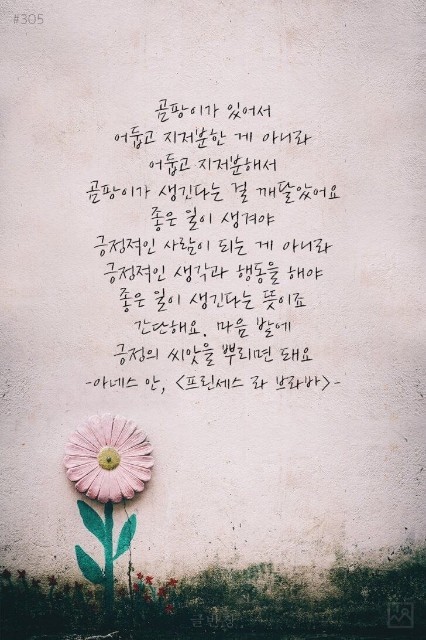 #305
곰팡이가 있어서
어둡고 지저분한 게 아니라
어둡고 지저분해서
곰팡이가 생긴다는 걸 깨달았어요
좋은 일이 생겨야
긍정적인 사람이 되는 게 아니라
긍정적인 생각과 행동을 해야
좋은 일이 생긴다는 뜻이죠
간단해요. 마음 밭에
긍정의 씨앗을 뿌리면 돼요
-아네스 안, <프린세스 라 브라바>-
글반장